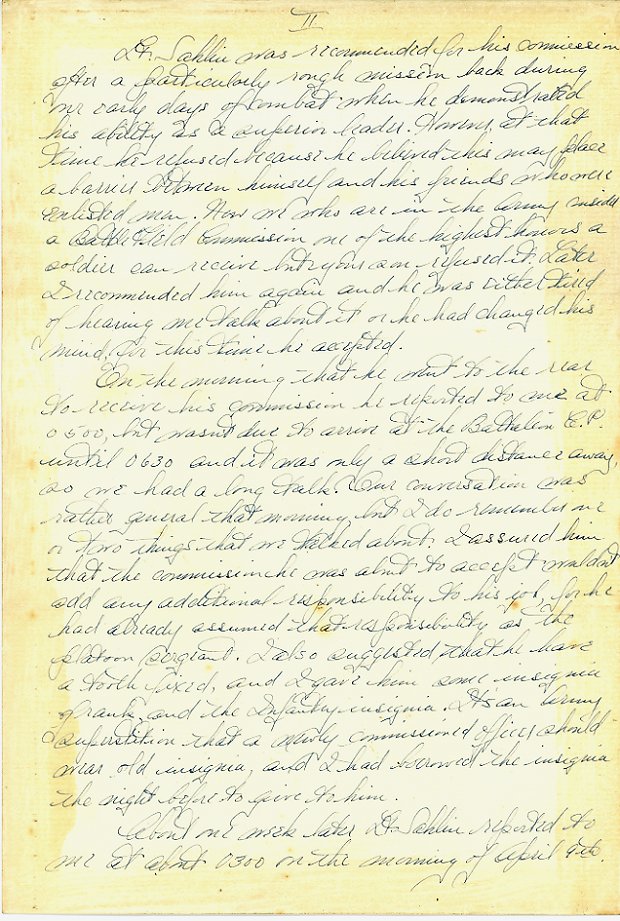 II
Lt. Sahlin was recommended for his commission
after a particularly rough mission back during
our early days of combat when he demonstrated
his ability as a superior leader. However, at that
time he refused because he believed this may place
a barrier between himself and his friends who were
enlisted men. Now we who are in the Army consider
a Battle Field Commission one of the highest honors a
soldier can receive but your son refused it. Later
I recommended him again and he was either tired
of hearing me talk about it or he had changed his
mind, for this time he accepted.
On the morning that he went to the rear
to receive his commission he reported to me at
0500, but wasn't due to arrive at the Battalion C.P.
until 0630 and it was only a short distance away,
so we had a long talk. Our conversation was
rather general that morning, but I do remember one
or two things that we talked about. I assured him
that the commission he was about to accept wouldn't
add any additional responsibility to his job, for he
had already assumed that responsibility as the
platoon sergeant. I also suggested that he have
a tooth fixed, and I gave him some insignia
of rank and the Infantry insignia. It's an Army
superstition that a newly commissioned officer should
wear old insignia, and I had borrowed the insignia
the night before to give to him.
About one week later Lt. Sahlin reported to
me at about 0300 on the morning of April 9th.